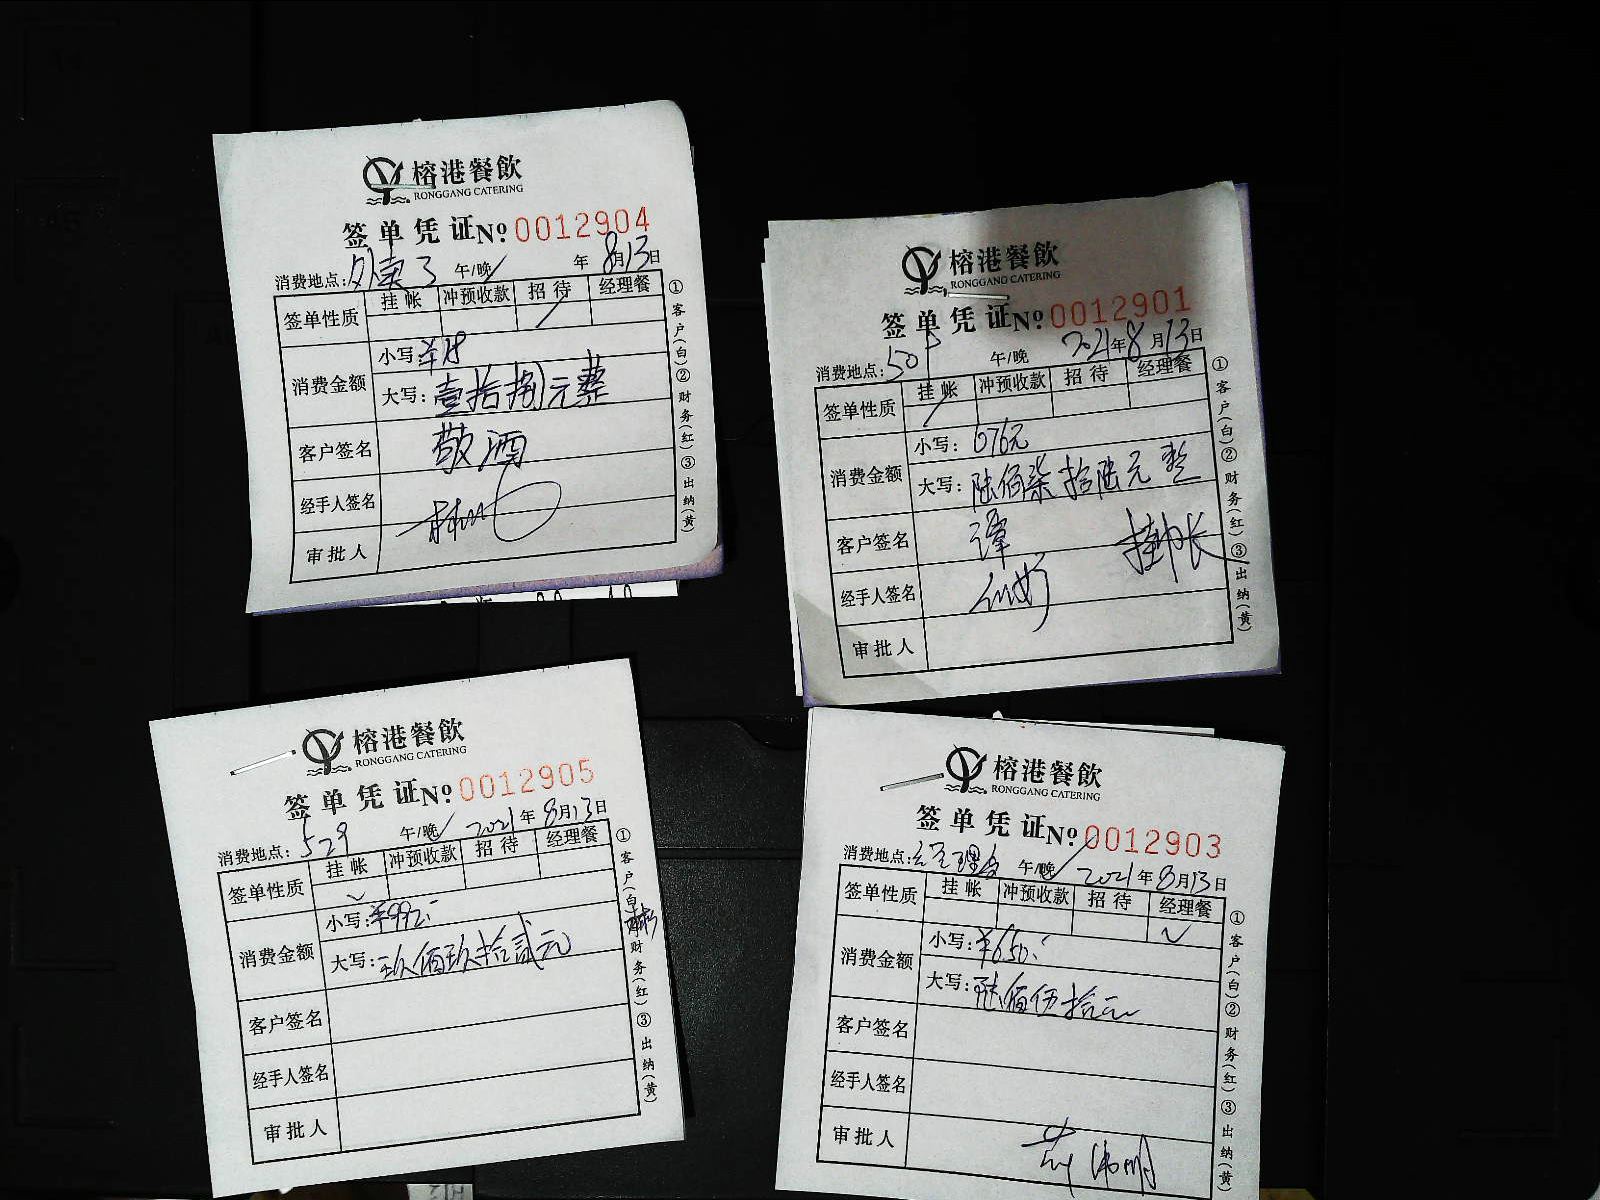 榕港餐飲
RONGGANG CATERING
签单凭证 №0012904
消费地点: 外卖3 午/晚 年8月13日
挂帐 冲预收款 招待 经理餐
签单性质
小写: ¥18
消费金额
大写: 壹拾捌元整
客户签名 敬酒
经手人签名
审批人
①客户(白)②财务(红)③出纳(黄)
榕港餐飲
RONGGANG CATERING
签单凭证 №0012901
消费地点: 50 午/晚 2021年8月13日
挂帐 冲预收款 招待 经理餐
签单性质
小写: 676元
消费金额
大写: 陆佰柒拾陆元整
客户签名 谭 挂帐
经手人签名
审批人
①客户(白)②财务(红)③出纳(黄)
榕港餐飲
RONGGANG CATERING
签单凭证 №0012905
消费地点: 529 午/晚 2021年8月13日
挂帐 冲预收款 招待 经理餐
签单性质
小写: ¥992.-
消费金额
大写: 玖佰玖拾贰元
客户签名
经手人签名
审批人
①客户(白) 财务(红)③出纳(黄)
榕港餐飲
RONGGANG CATERING
签单凭证 №0012903
消费地点: 经理 午/晚 2021年8月13日
挂帐 冲预收款 招待 经理餐
签单性质
小写: ¥650.-
消费金额
大写: 陆佰伍拾元
客户签名
经手人签名
审批人
①客户(白)②财务(红)③出纳(黄)